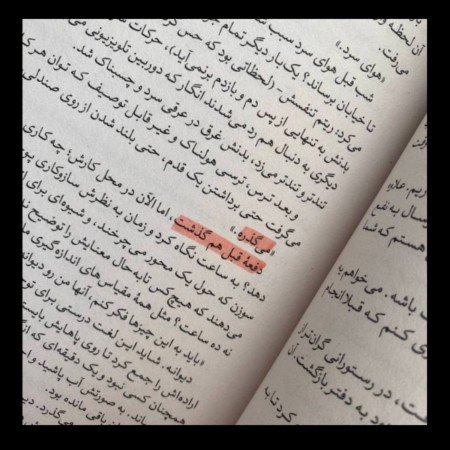 آن لحظه و
می‌رفت.
«هوای سرد.»
شب قبل هوای سرد سبب
تا خیابان برساند؟ یک‌بار دیگر تمام
می‌کرد: ریتم تنفسش - (لحظاتی بود که حس
بدنش به تنهایی از پس دم و بازدم برنمی‌آید)، حرکات
دیگری به دنبال هم رد می‌شدند انگار که دوربین تلویزیونی
تندتر و تندتر می‌زد، بدنش غرق در عرقی سرد و چسبناک شد.
و بعد ترس، ترسی هولناک و غیر قابل توصیف که توان هر
می‌گرفت حتی برداشتن یک قدم، حتی بلند شدن از روی صندلی
«می‌گذره.»
دفعهٔ قبل هم گذشت اما الآن در محل کارش؛ چه کاری
دهد؟ به ساعت نگاه کرد و زمان به نظرش سازوکاری
سوزن که حول یک محور می‌چرخند، و شیوه‌ای برای
می‌دهند که هیچ‌کس تابه‌حال معنایش را توضیح
نه ده ساعت؟ مثل همهٔ مقیاس‌های اندازه‌گیری
«باید به این چیزها فکر کنم، آنها من رو دیوانه
دیوانه. شاید این لغت درستی برای
اراده‌اش را جمع کرد تا روی پاهایش
همچنان کسی نبود و یک دقیقه‌ای که
به صورتش آب پاشید و
باقی مانده بود.
می‌گذرد.
ریم. علاوه
رسال به نفع
هستم که
باشه. می‌خواهم
کنم که قبلا انجام
در رستورانی گران‌تر از
به دفتر بازگشت. آن
کرد تا به